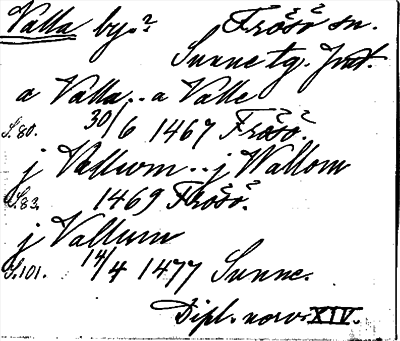 Valla by.? Frösö sn.
Sunne tg. Jmt.
a Valla..a Valle
S.80. 30/6 1467 Frösö.
j Vallum..j Wallom
S.83. 1469 Frösö.
j Vallum
S.101. 14/4 1477 Sunne.
Dipl. norv. XIV.